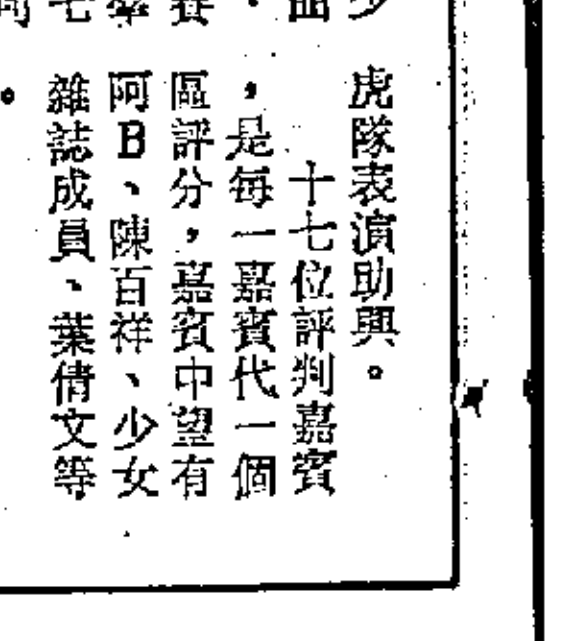 虎隊表演助興。
十七位評判嘉賓
，是每一嘉賓代一個
區評分，嘉賓中望有
阿B、陳百祥、少女
雜誌成員、葉倩文等
。